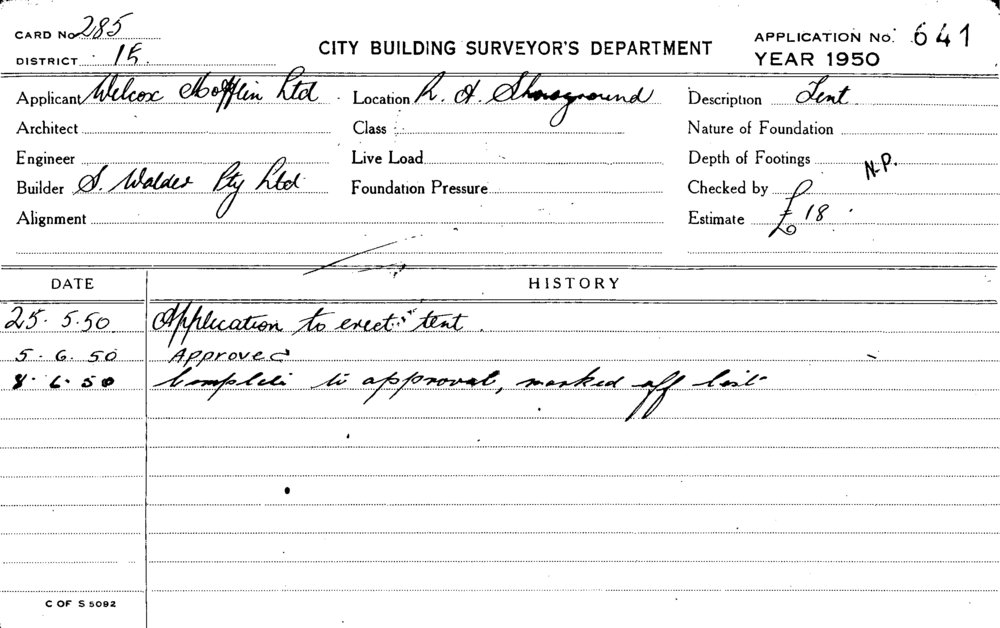 CARD No 285
DISTRICT 15.
CITY BUILDING SURVEYOR'S DEPARTMENT
APPLICATION No. 641
YEAR 1950
Applicant Welcox Mofflin Ltd
Location R. A. Showground
Description Tent.
Architect
Class
Nature of Foundation
Engineer
Live Load
Depth of Footings
N.P.
Builder S. Walder Pty Ltd
Foundation Pressure
Checked by
Alignment
Estimate £18.
DATE
HISTORY
25. 5.50. Application to erect tent.
5. 6. 50 Approved
8. 6. 50 Complete to approval, marked off list
C OF S 5092